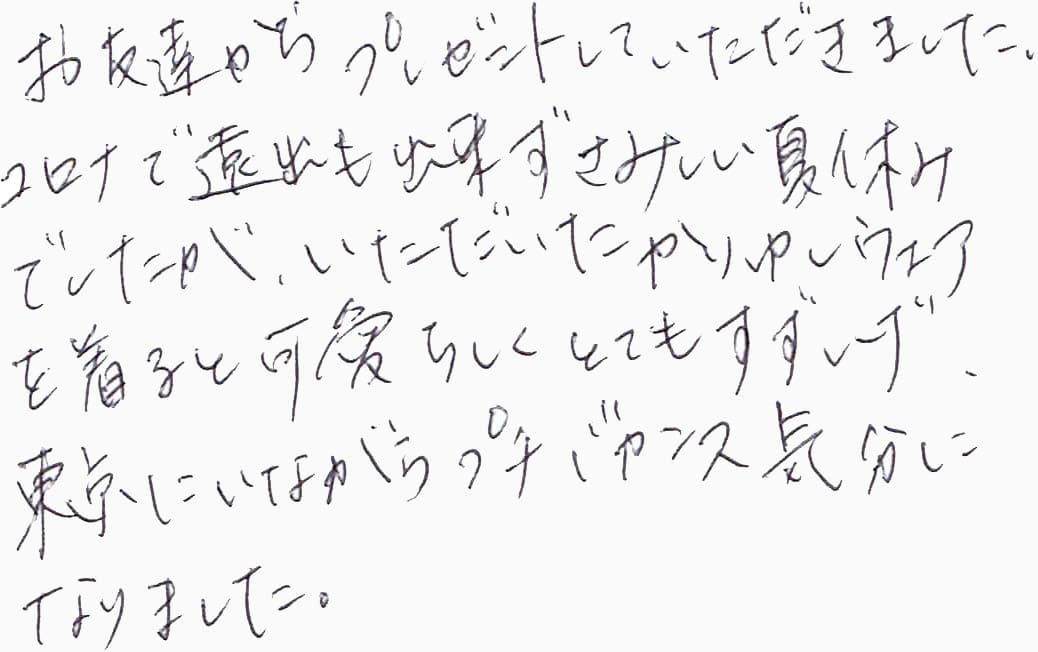 お友達からプレゼントしていただきました。
コロナで遠出も出来ずさみしい夏休み
でしたが、いただいたかりゆしウェア
を着ると可愛らしくとてもすずしげ、
東京にいながらプチバカンス気分に
なりました。